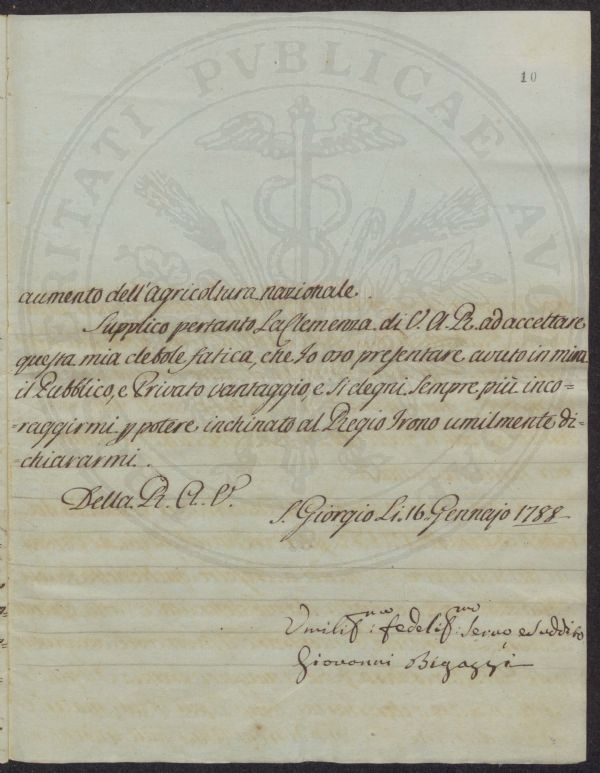 10
aumento dell'Agricoltura nazionale.
Supplico pertanto La Clemenza di V. A. R. ad accettare
questa mia debole fatica, che Io oso presentare avuto in mira
il Pubblico, e Privato vantaggio, e si degni sempre più inco-
-raggirmi p potere inchinato al Regio Trono umilmente di-
-chiararmi.
Della R. A. V.
S. Giorgio Li. 16. Gennajo 1788
Umiliss:mo fedeliss:mo Servo e Suddito
Giovanni Bigazzi
PVBLICAE